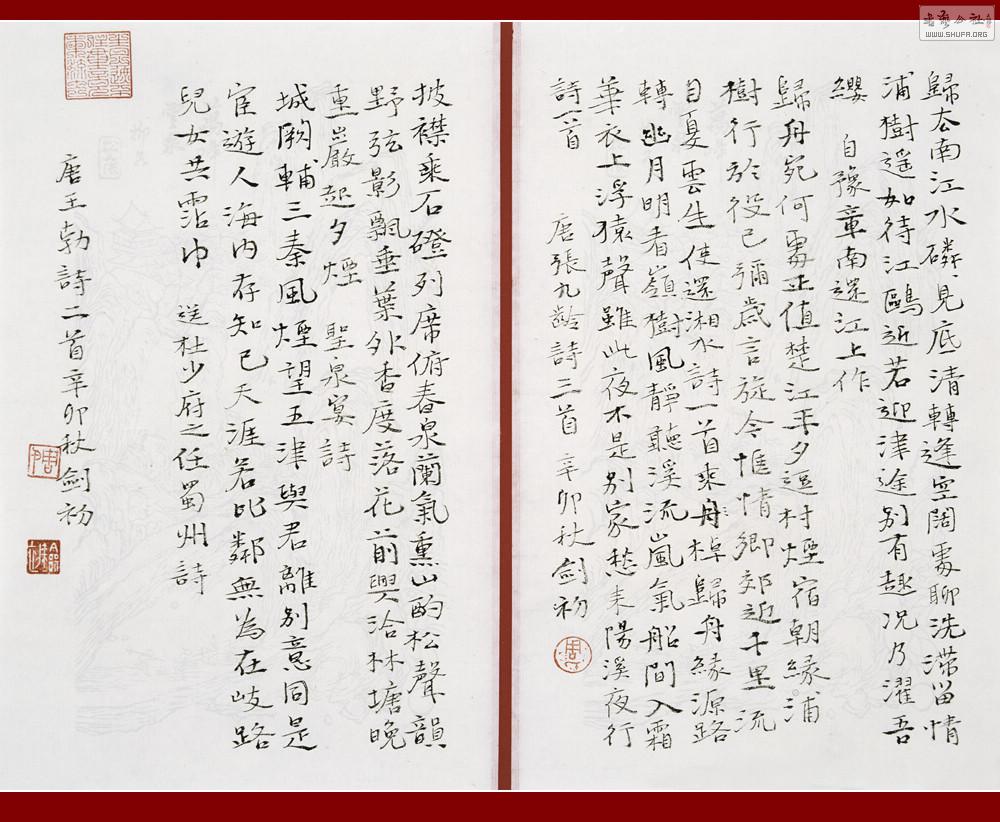 歸去南江水磷磷見底清轉逢空闊處聊洗滯留情
浦樹遥如待江鷗近若迎津途别有趣況乃濯吾
纓 自豫章南還江上作
歸舟宛何處正值楚江平夕逗村煙宿朝緣浦
樹行於役已彌歲言旋今愜情鄉郊近千里流
目夏雲生 使還湘水詩一首 乘舟棹歸舟緣源路
轉幽月明看嶺樹風靜聽溪流嵐氣船間入霜
華衣上浮猿聲雖此夜不是别家愁 耒陽溪夜行
詩一首 唐張九齡詩三首 辛卯秋劍初
披襟乘石磴列席俯春泉蘭氣熏山酌松聲韻
野弦影飄垂葉外香度落花前興洽林塘晚
重巖起夕煙 聖泉宴詩
城闕輔三秦風煙望五津與君離别意同是
宦遊人海内存知己天涯若比鄰無為在歧路
兒女共霑巾 送杜少府之任蜀州詩
唐王勃詩二首辛卯秋劍初
WWW.SHUFA.ORG